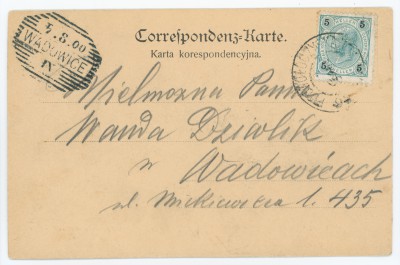 Correspondenz-Karte.
Karta korespondencyjna.
5.8.00
WADOWICE
IV
5 5
5 5
Wielmożna Panna
Wanda Dziwlik
w
Wadowicach
ul. Mickiewicza l. 435